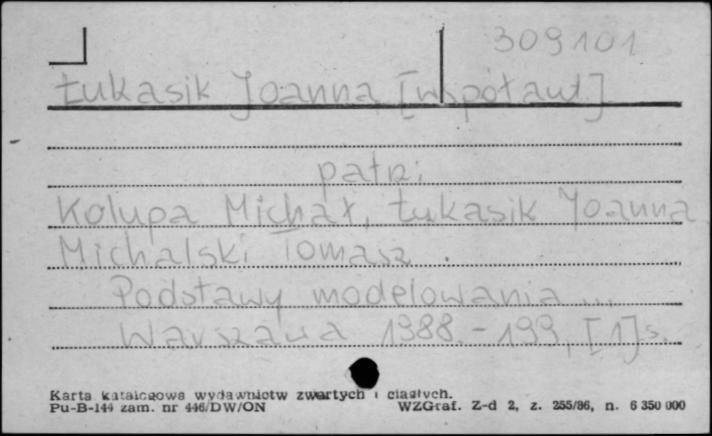 309101
Łukasik Joanna [współaut.]
patrz:
Kolupa Michał, Łukasik Joanna
Michalski Tomasz.
Podstawy modelowania ...
Warszawa 1988. - 199, [1] s.
Karta katalogowa wydawnictw zwartych i ciągłych.
Pu-B-144 zam. nr 446/DW/ON WZGraf. Z-d 2, z. 255/86, n. 6 350 000